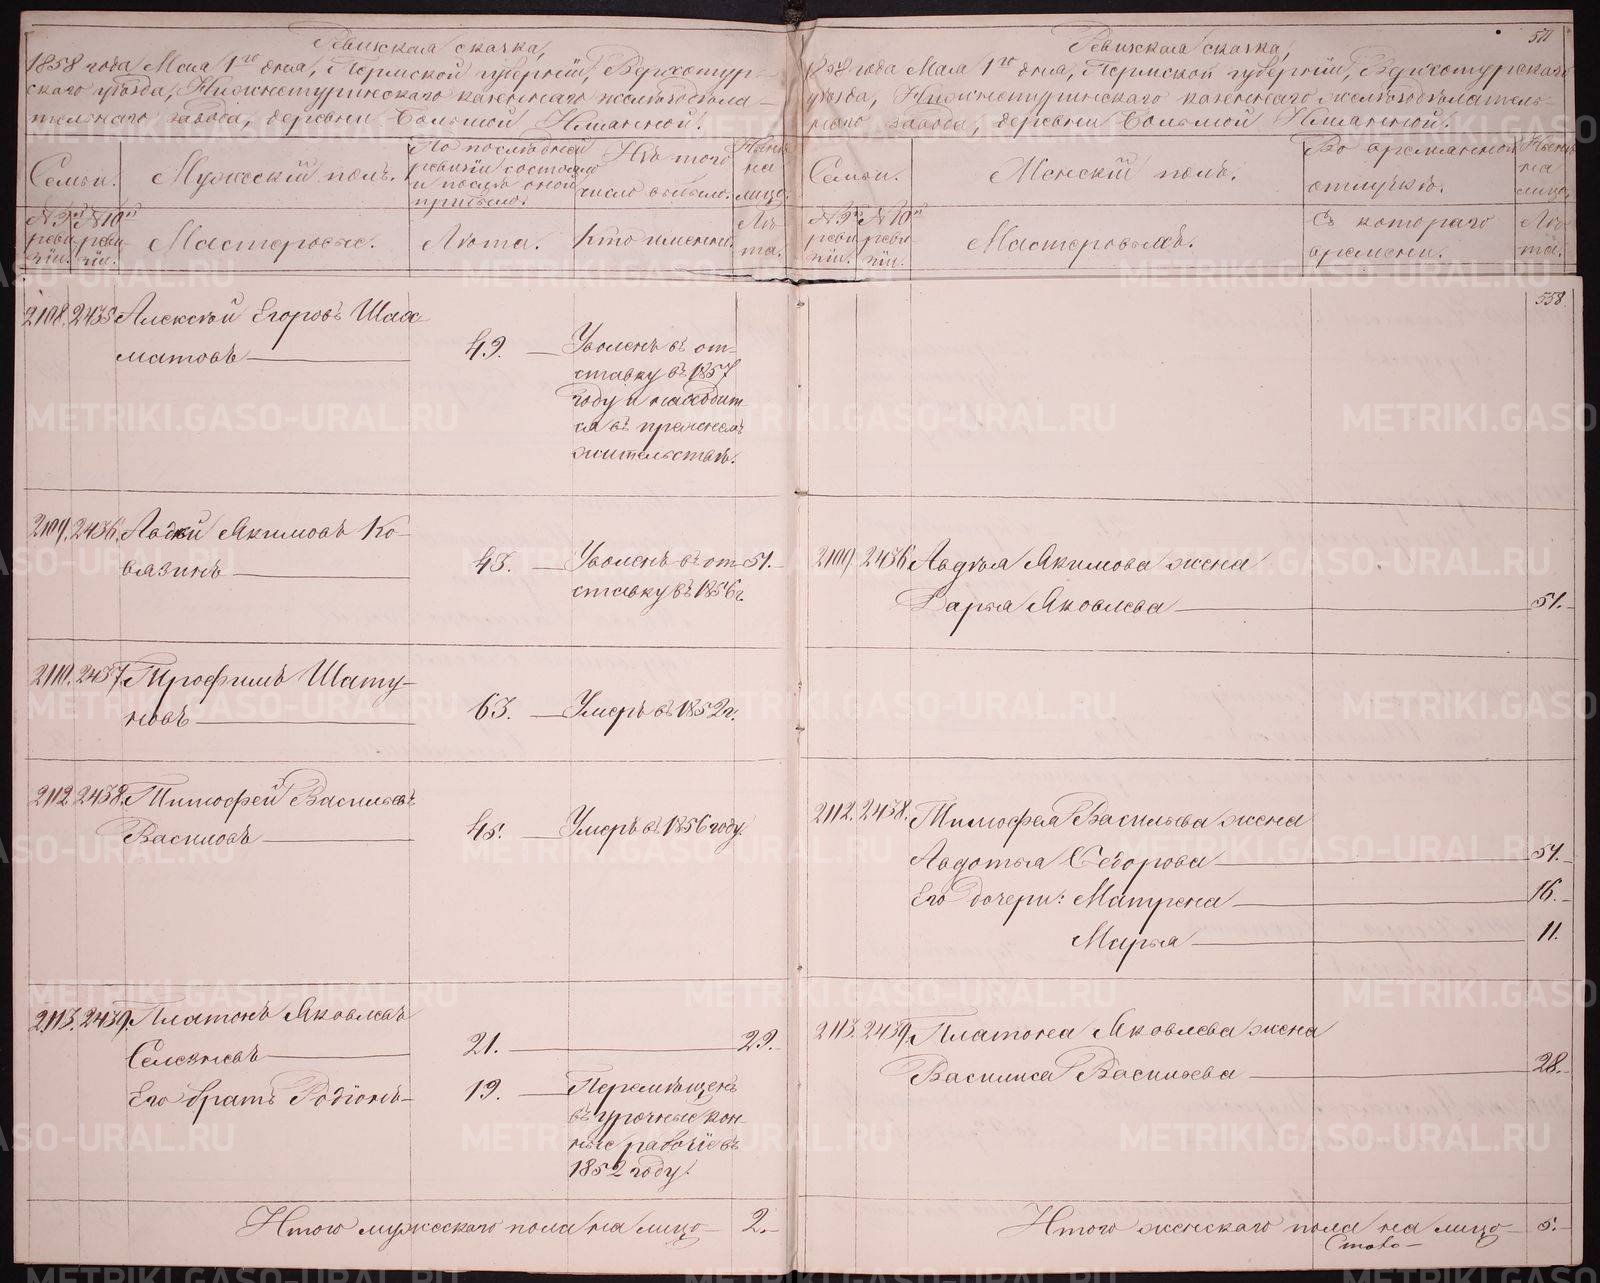 Ревижская сказка,
1858 года Мая 1го дня, Пермской губернiи, Верхотур-
скаго уѣзда, Нижнетуринскаго казеннаго желѣзодѣла-
тельнаго завода, деревни Большой Именной.
Семьи.
Мужескiй полъ.
По послѣдней
ревизiи состояло
и послѣ оной
прибыло.
Изъ того
число выбыло.
Нынѣ
на
лицо.
№ 9й
реви
зiи.
№ 10й
реви
зiи.
Мастеровые.
Лѣта.
Кто именно.
Лѣ
та.
2108. 2435 Алексѣй Егоровъ Шах-
матовъ
49.
Уволенъ въ от-
ставку въ 1857
году и находит-
ся въ прежнемъ
жительствѣ.
2109. 2436. Авдѣй Якимовъ Ко-
вязинъ
43.
Уволенъ въ от-
ставку въ 1856 г.
51.
2110. 2437 Трофимъ Шату-
новъ
63.
Умеръ въ 1852 г.
2112. 2438. Тимофей Васильевъ
Василовъ
45.
Умеръ въ 1856 году.
2113. 2439. Платонъ Яковлевъ
Селезневъ
21.
29.
Его братъ Родiонъ
19.
Перемѣщенъ
въ урочные кон-
ные рабочiе въ
1852 году.
Итого мужескаго пола на лицо
2.
511
Ревижская сказка,
1858 года Мая 1го дня, Пермской губернiи, Верхотурскаго
уѣзда, Нижнетуринскаго казеннаго желѣзодѣлатель-
наго завода, деревни Большой Именной.
Семьи.
Женскiй полъ.
Во временной
отлучкѣ.
Нынѣ
на
лицо.
№ 9й
реви
зiи.
№ 10й
реви
зiи.
Мастеровыхъ.
Съ котораго
времени.
Лѣ
та.
558.
2109. 2436 Авдѣя Якимова жена
Дарья Яковлева
51.
2112. 2438. Тимофея Васильева жена
Авдотья Ѳедорова
51.
Его дочери: Матрена
16.
Марья
11.
2113. 2439. Платона Яковлева жена
Василиса Васильева
28.
Итого женскаго пола на лицо
5.
METRIKI.GASO-URAL.RU